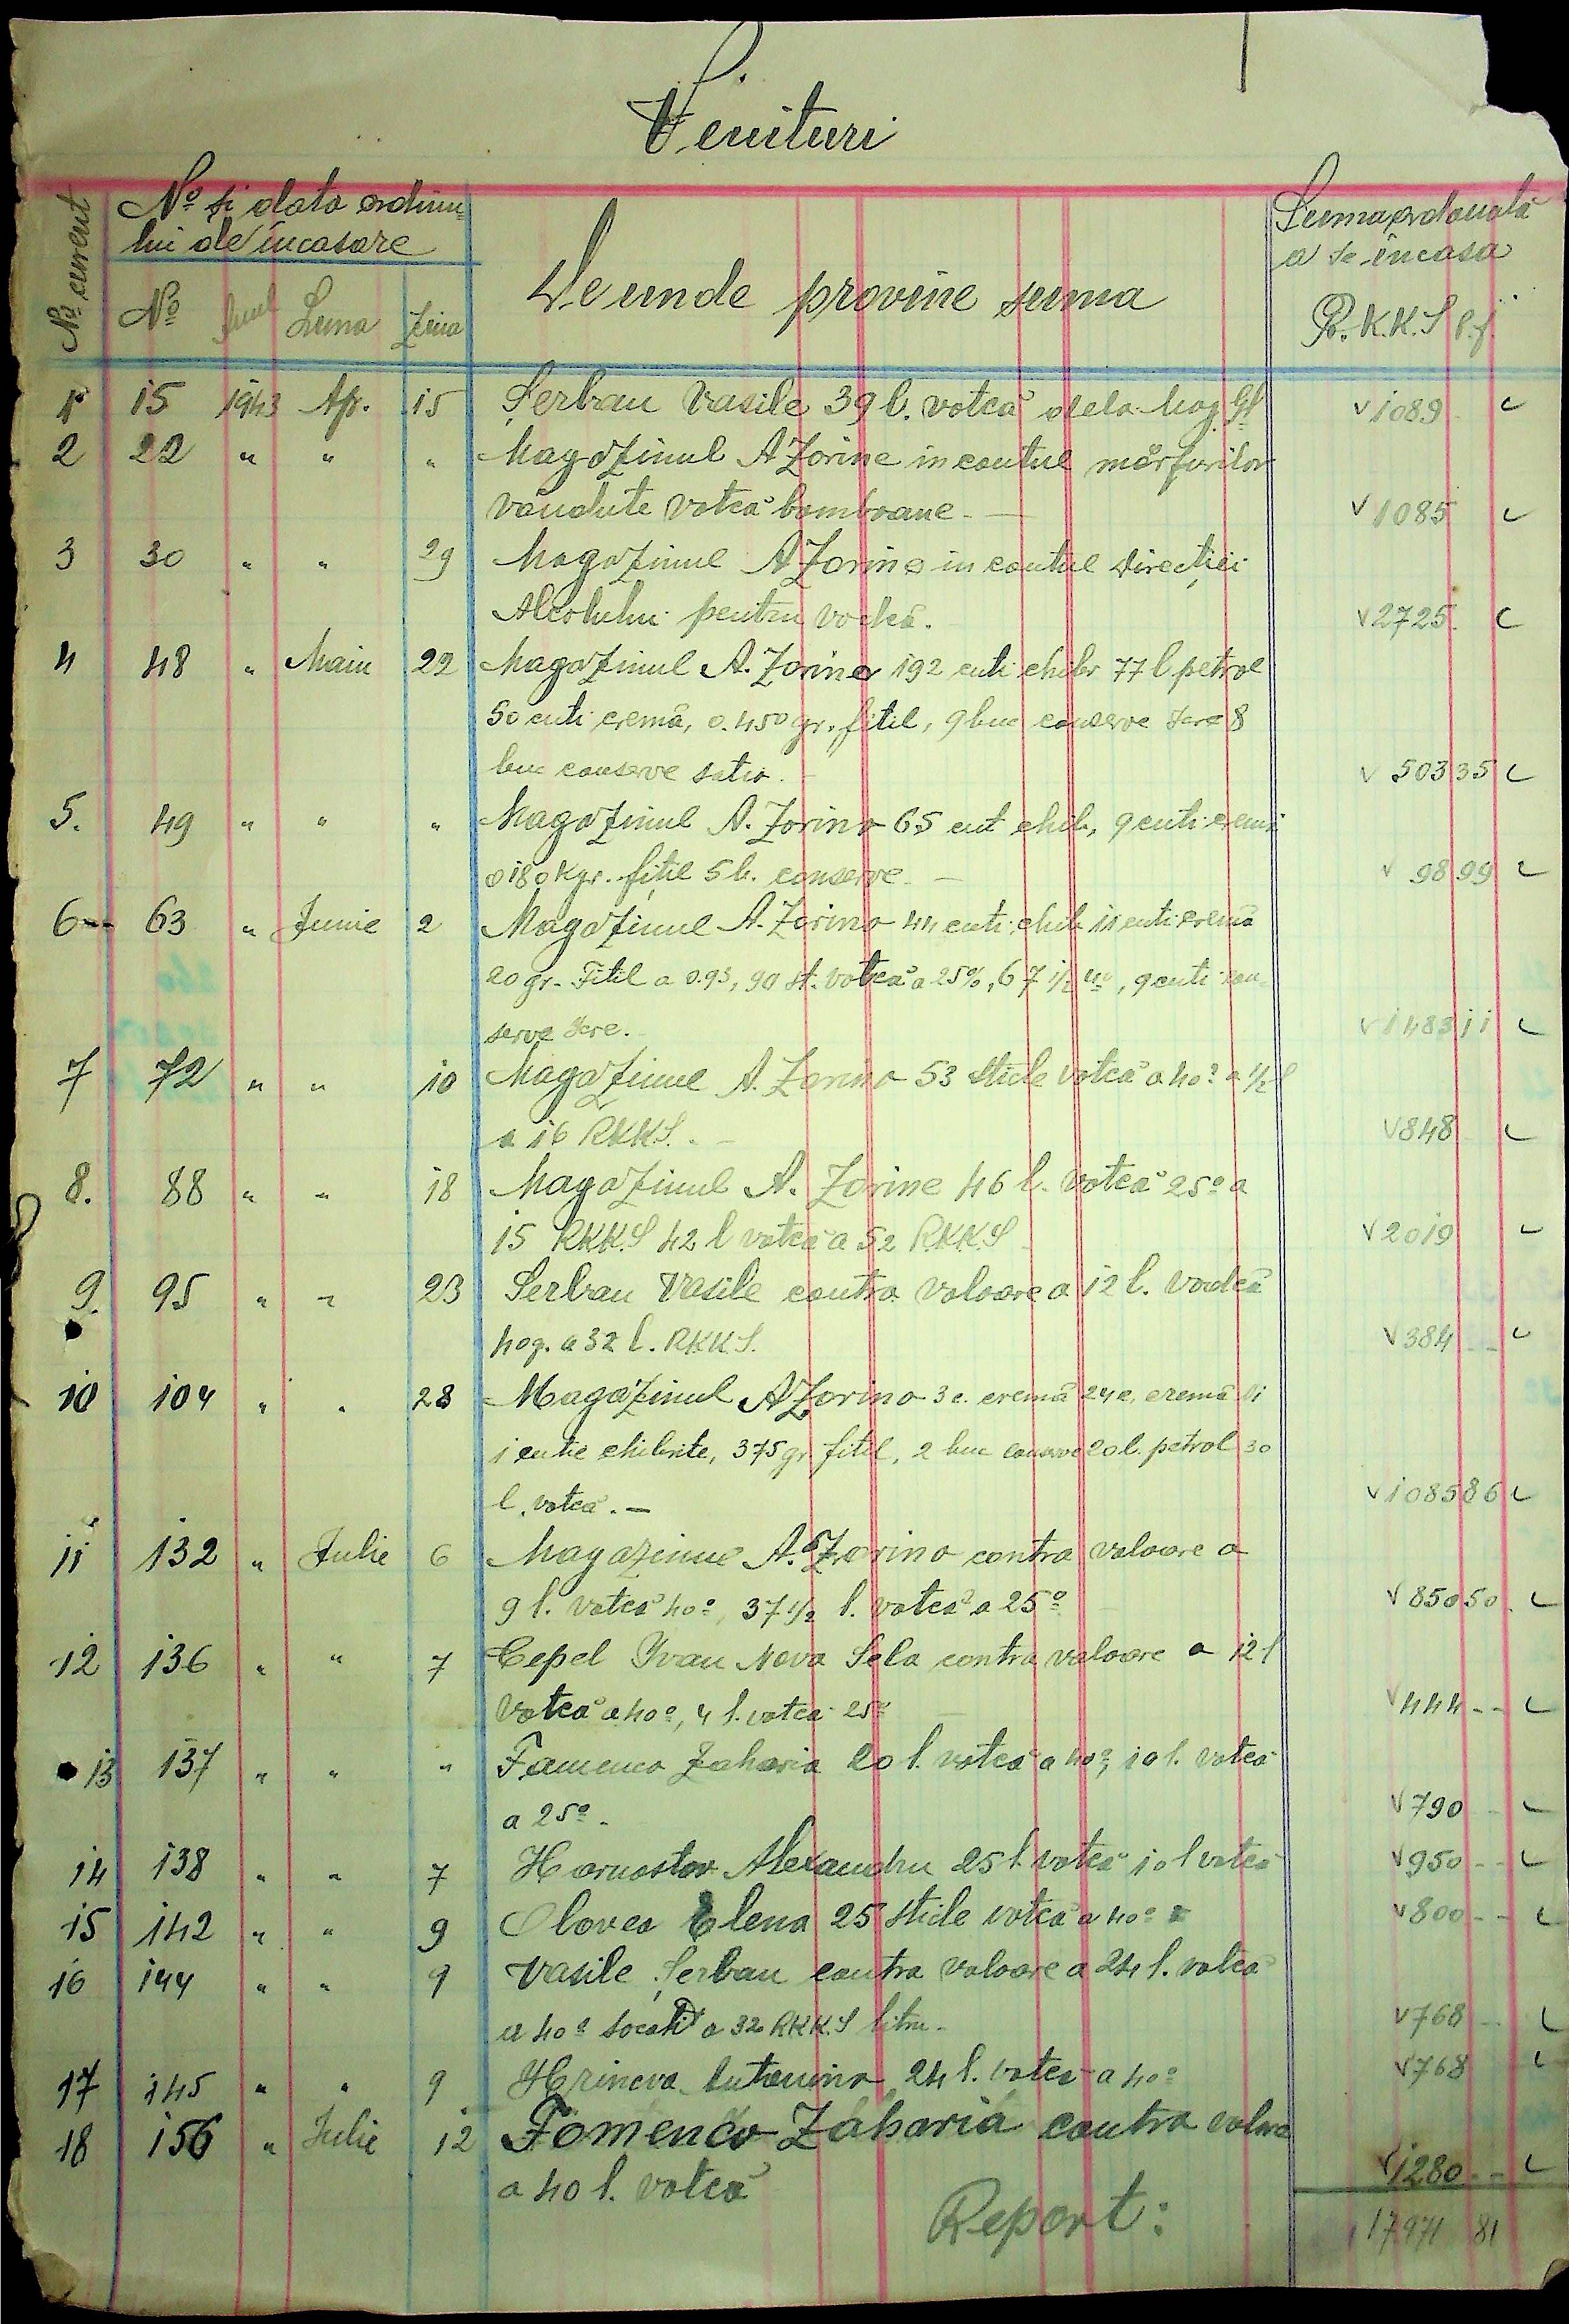 Venituri
No curent
No și data ordinu-
lui de încasare
No Anul Luna Ziua
De unde provine suma
Suma ordonată
a se încasa
R.K.K.S p.f.
1 15 1943 Ap. 15 Șerban Vasile 39 l. votcă dela Mag. Gl 1089
2 22 " " " Magazinul A Zorine in contul mărfurilor
vândute votcă bomboane - 1085
3 30 " " 29 Magazinul A Zorine in contul Direcției
Alcolului pentru vodcă. 2725
4 48 " Maiu 22 Magazinul A. Zorine 192 cuti chibr 77 l petrol
50 cuti cremă, 0.450 gr. fitil, 9 buc conserve 8
buc conserve 503 35
5. 49 " " " Magazinul A. Zorino 65 cut chib, 9 cuti cremă
0180 Kgr. fitil 5 b. conserve - 98 99
6 63 " Junie 2 Magazinul A. Zorino 44 cuti chib 11 cuti cremă
20 gr. Fitil a 0.93, 90 st. votcă a 25%, 67 1/2, 9 cuti con-
serve 1483 11
7 72 " " 10 Magazinul A. Zorino 53 sticle votcă a 40° a 1/2 l
a 16 RKKS. - 848
8. 88 " " 18 Magazinul A. Zorine 46 l. votcă 25° a
15 RKK.S 42 l votcă a 52 RKK.S 2019
9. 95 " " 23 Serban Vasile contra valoare a 12 l. vodcă
40g. a 32 l. RKKS. 384 --
10 104 " " 28 Magazinul A Zorino 3 c. cremă 24 c. cremă
1 cutie chibrite, 375 gr. fitil, 2 buc conserve 20 l. petrol 30
l. votcă. - 1085 86
11 132 " Julie 6 Magazinul A. Zorino contra valoare a
9 l. votcă 40°, 37 1/2 l. votcă a 25° 850 50
12 136 " " 7 Cepel Ivan Nova Sela contra valoare a 12 l
votcă a 40°, 4 l. votcă 25° 444 --
13 137 " " " Famenco Zaharia 20 l. votcă a 40°, 10 l. votcă
a 25°. 790 -
14 138 " " 7 Harnostav Alexandru 25 l votcă 10 l votcă 950 --
15 142 " " 9 Elena 25 sticle votcă a 40° 800 --
16 144 " " 9 Vasile Șerban contra valoare a 24 l. votcă
a 40° socotit a 32 RKK.S litru - 768 --
17 145 " " 9 Hrincva 24 l. votcă a 40° 768
18 156 " Julie 12 Fomenco Zaharia contra valoare
a 40 l. votcă 1280 --
Report: 17971 81